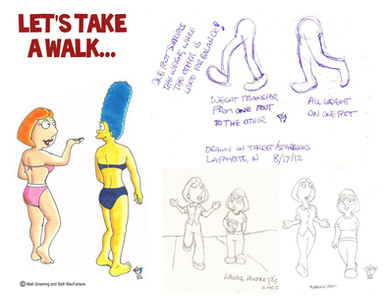 LET'S TAKE
A WALK...
ONE FOOT SUPPORTS
THE WEIGHT, WHERE
THE OTHER IS
USED FOR BALANCE!
WEIGHT TRANSFER
FROM ONE FOOT
TO THE OTHER
ALL WEIGHT
ON ONE FOOT
DRAWN IN TARGET/STARBUCKS
LAFAYETTE, IN 8/17/12
© Matt Groening and Seth MacFarlane